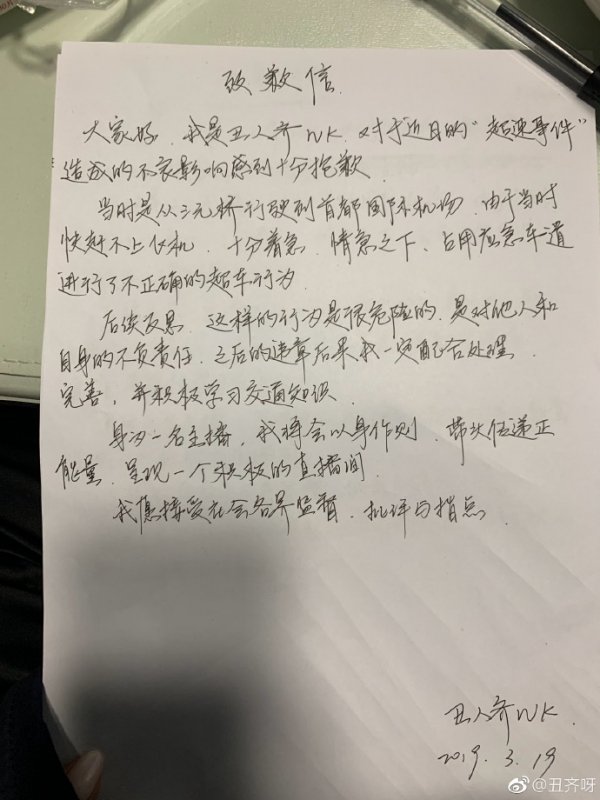 致歉信
大家好，我是丑人齐NK，对于近日的“超速事件”
造成的不良影响感到十分抱歉
当时是从三元桥行驶到首都国际机场，由于当时
快赶不上飞机，十分着急，情急之下，占用应急车道
进行了不正确的超车行为
后续反思，这样的行为是很危险的，是对他人和
自身的不负责任，之后的违章后果我一定配合处理
完善，并积极学习交通知识
身为一名主播，我将会以身作则，带头传递正
能量，呈现一个积极的直播间
我愿接受社会各界监督，批评与指点
丑人齐NK.
2019.3.19
@丑齐呀